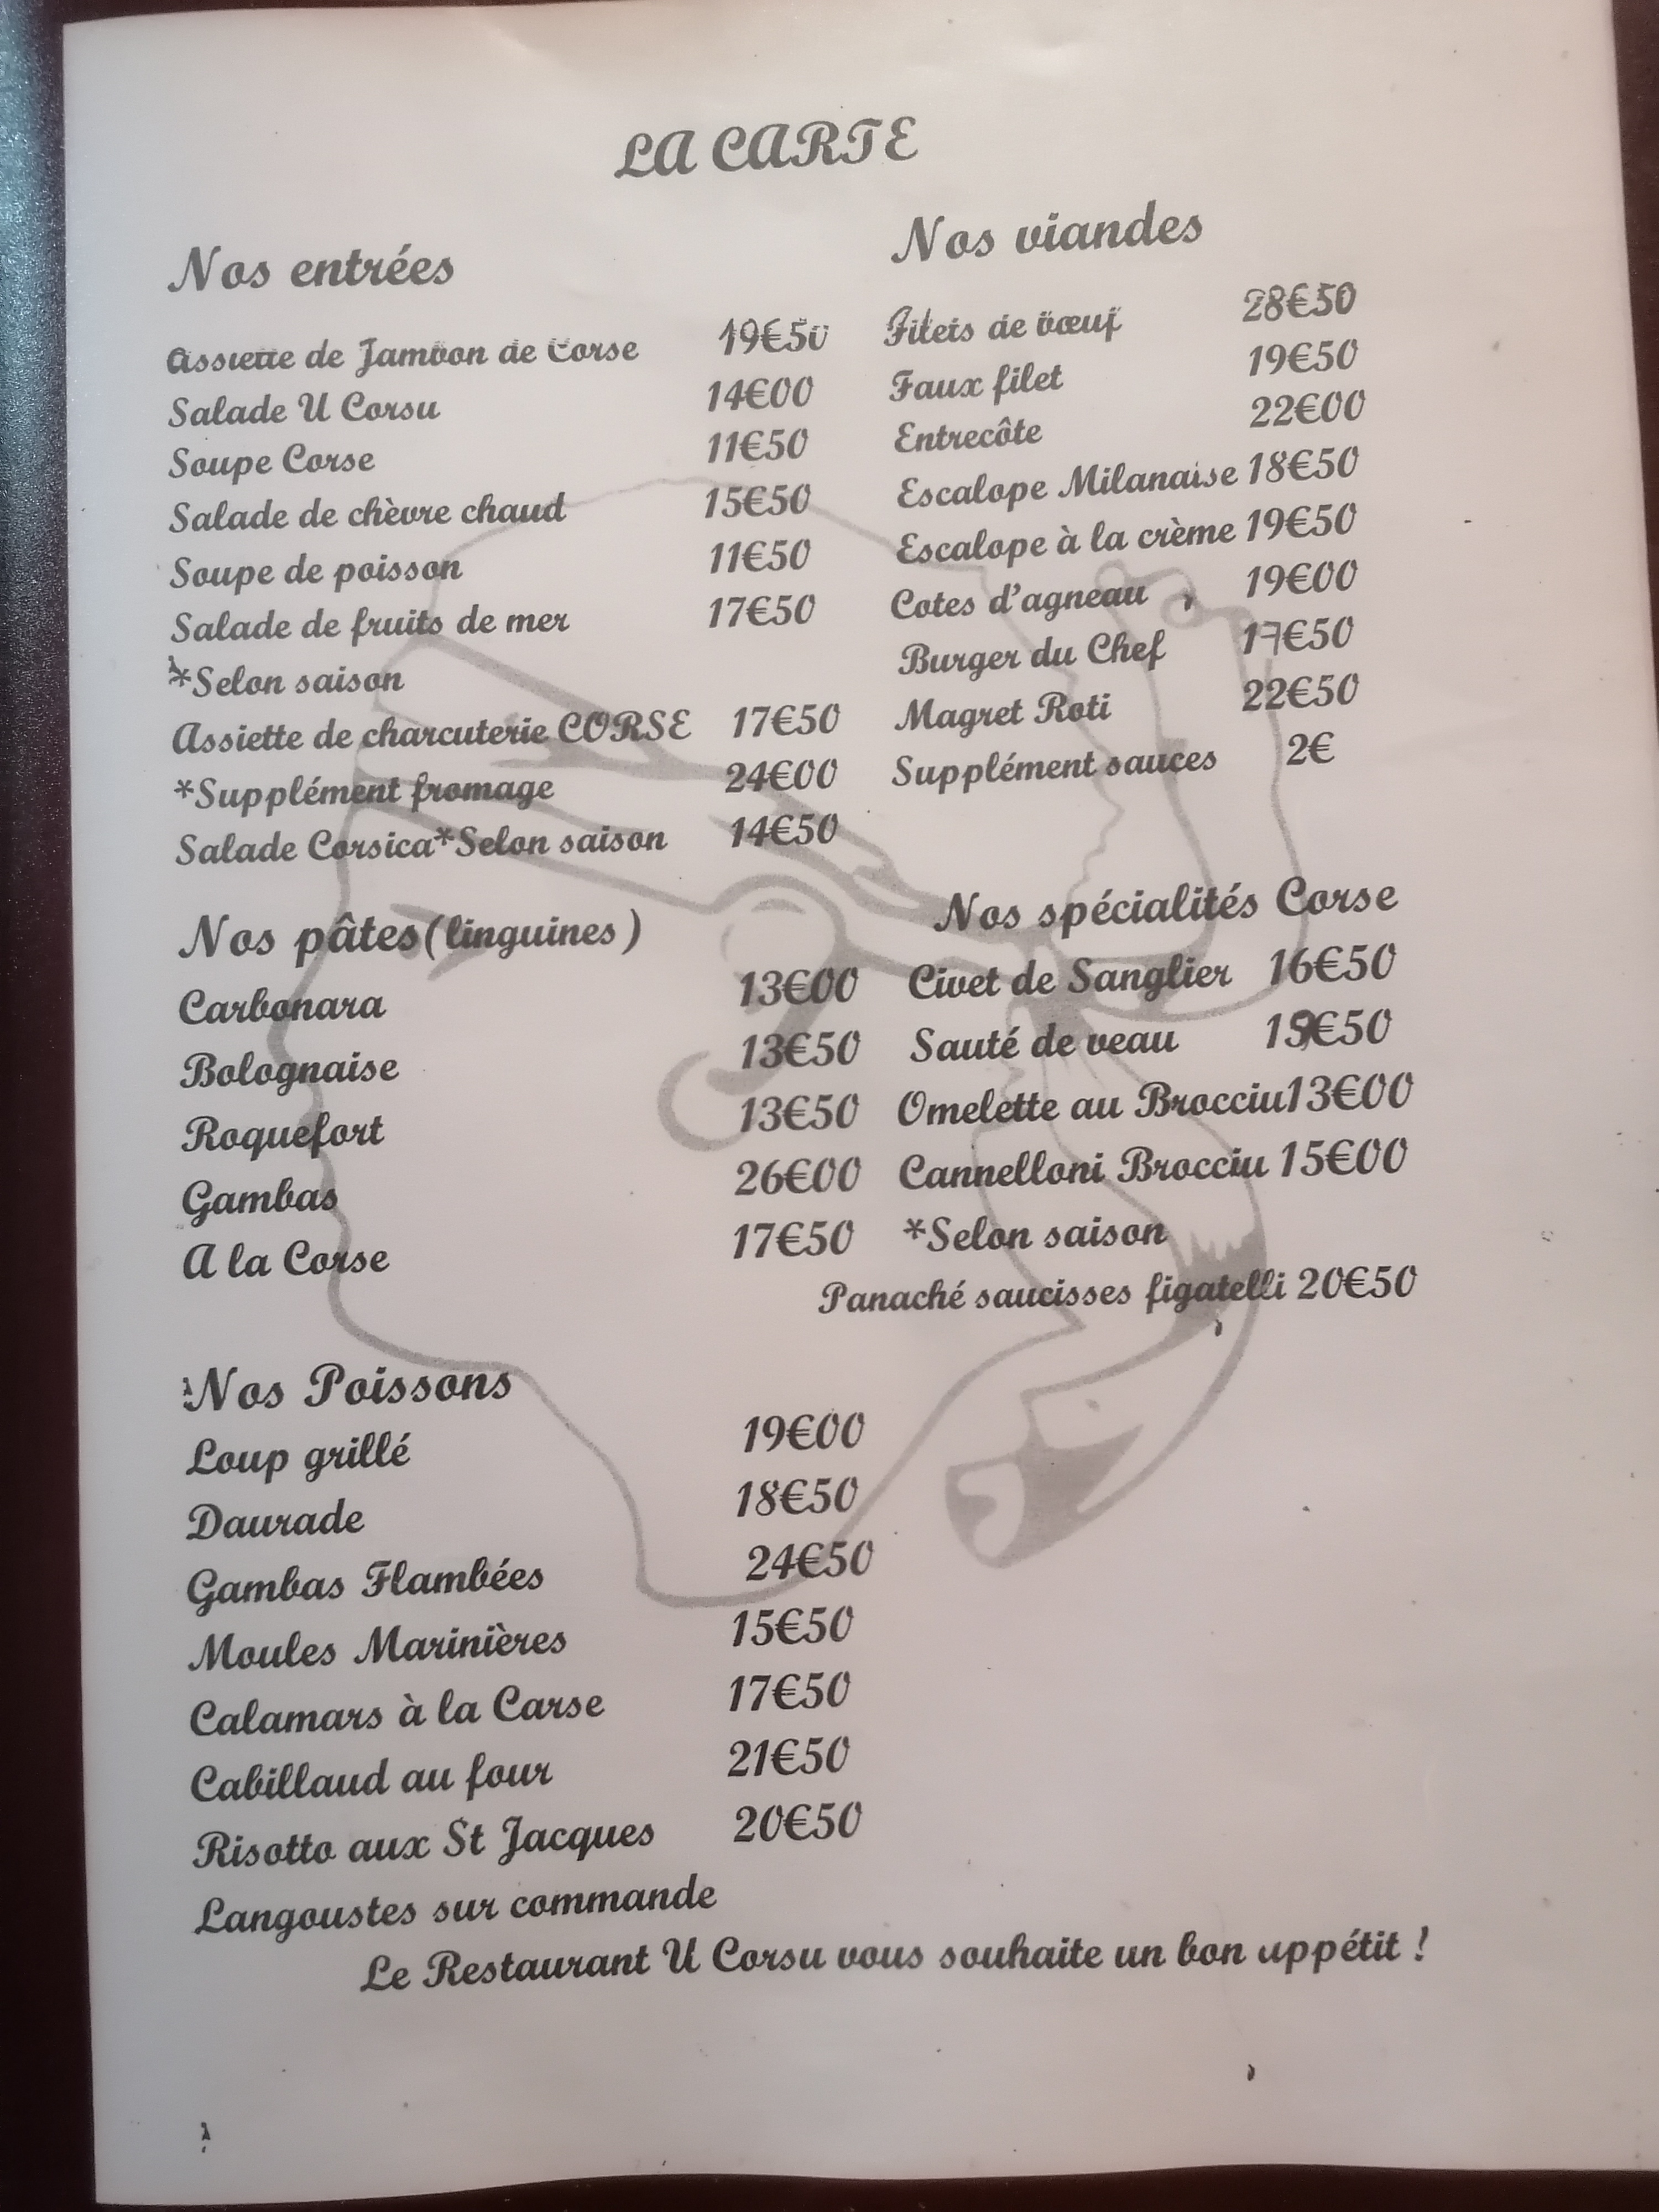 LA CARTE
Nos entrées
Assiette de Jambon de Corse 19€50
Salade U Corsu 14€00
Soupe Corse 11€50
Salade de chèvre chaud 15€50
Soupe de poisson 11€50
Salade de fruits de mer 17€50
*Selon saison
Assiette de charcuterie CORSE 17€50
*Supplément fromage 24€00
Salade Corsica*Selon saison 14€50
Nos pâtes(linguines)
Carbonara 13€00
Bolognaise 13€50
Roquefort 13€50
Gambas 26€00
A la Corse 17€50
Nos Poissons
Loup grillé 19€00
Daurade 18€50
Gambas Flambées 24€50
Moules Marinières 15€50
Calamars à la Carse 17€50
Cabillaud au four 21€50
Risotto aux St Jacques 20€50
Langoustes sur commande
Nos viandes
Filets de bœuf 28€50
Faux filet 19€50
Entrecôte 22€00
Escalope Milanaise 18€50
Escalope à la crème 19€50
Cotes d'agneau 19€00
Burger du Chef 17€50
Magret Roti 22€50
Supplément sauces 2€
Nos spécialités Corse
Civet de Sanglier 16€50
Sauté de veau
Omelette au Brocciu13€00
Cannelloni Brocciu 15€00
*Selon saison
Panaché saucisses figatelli 20€50
Le Restaurant U Corsu vous souhaite un bon appétit !